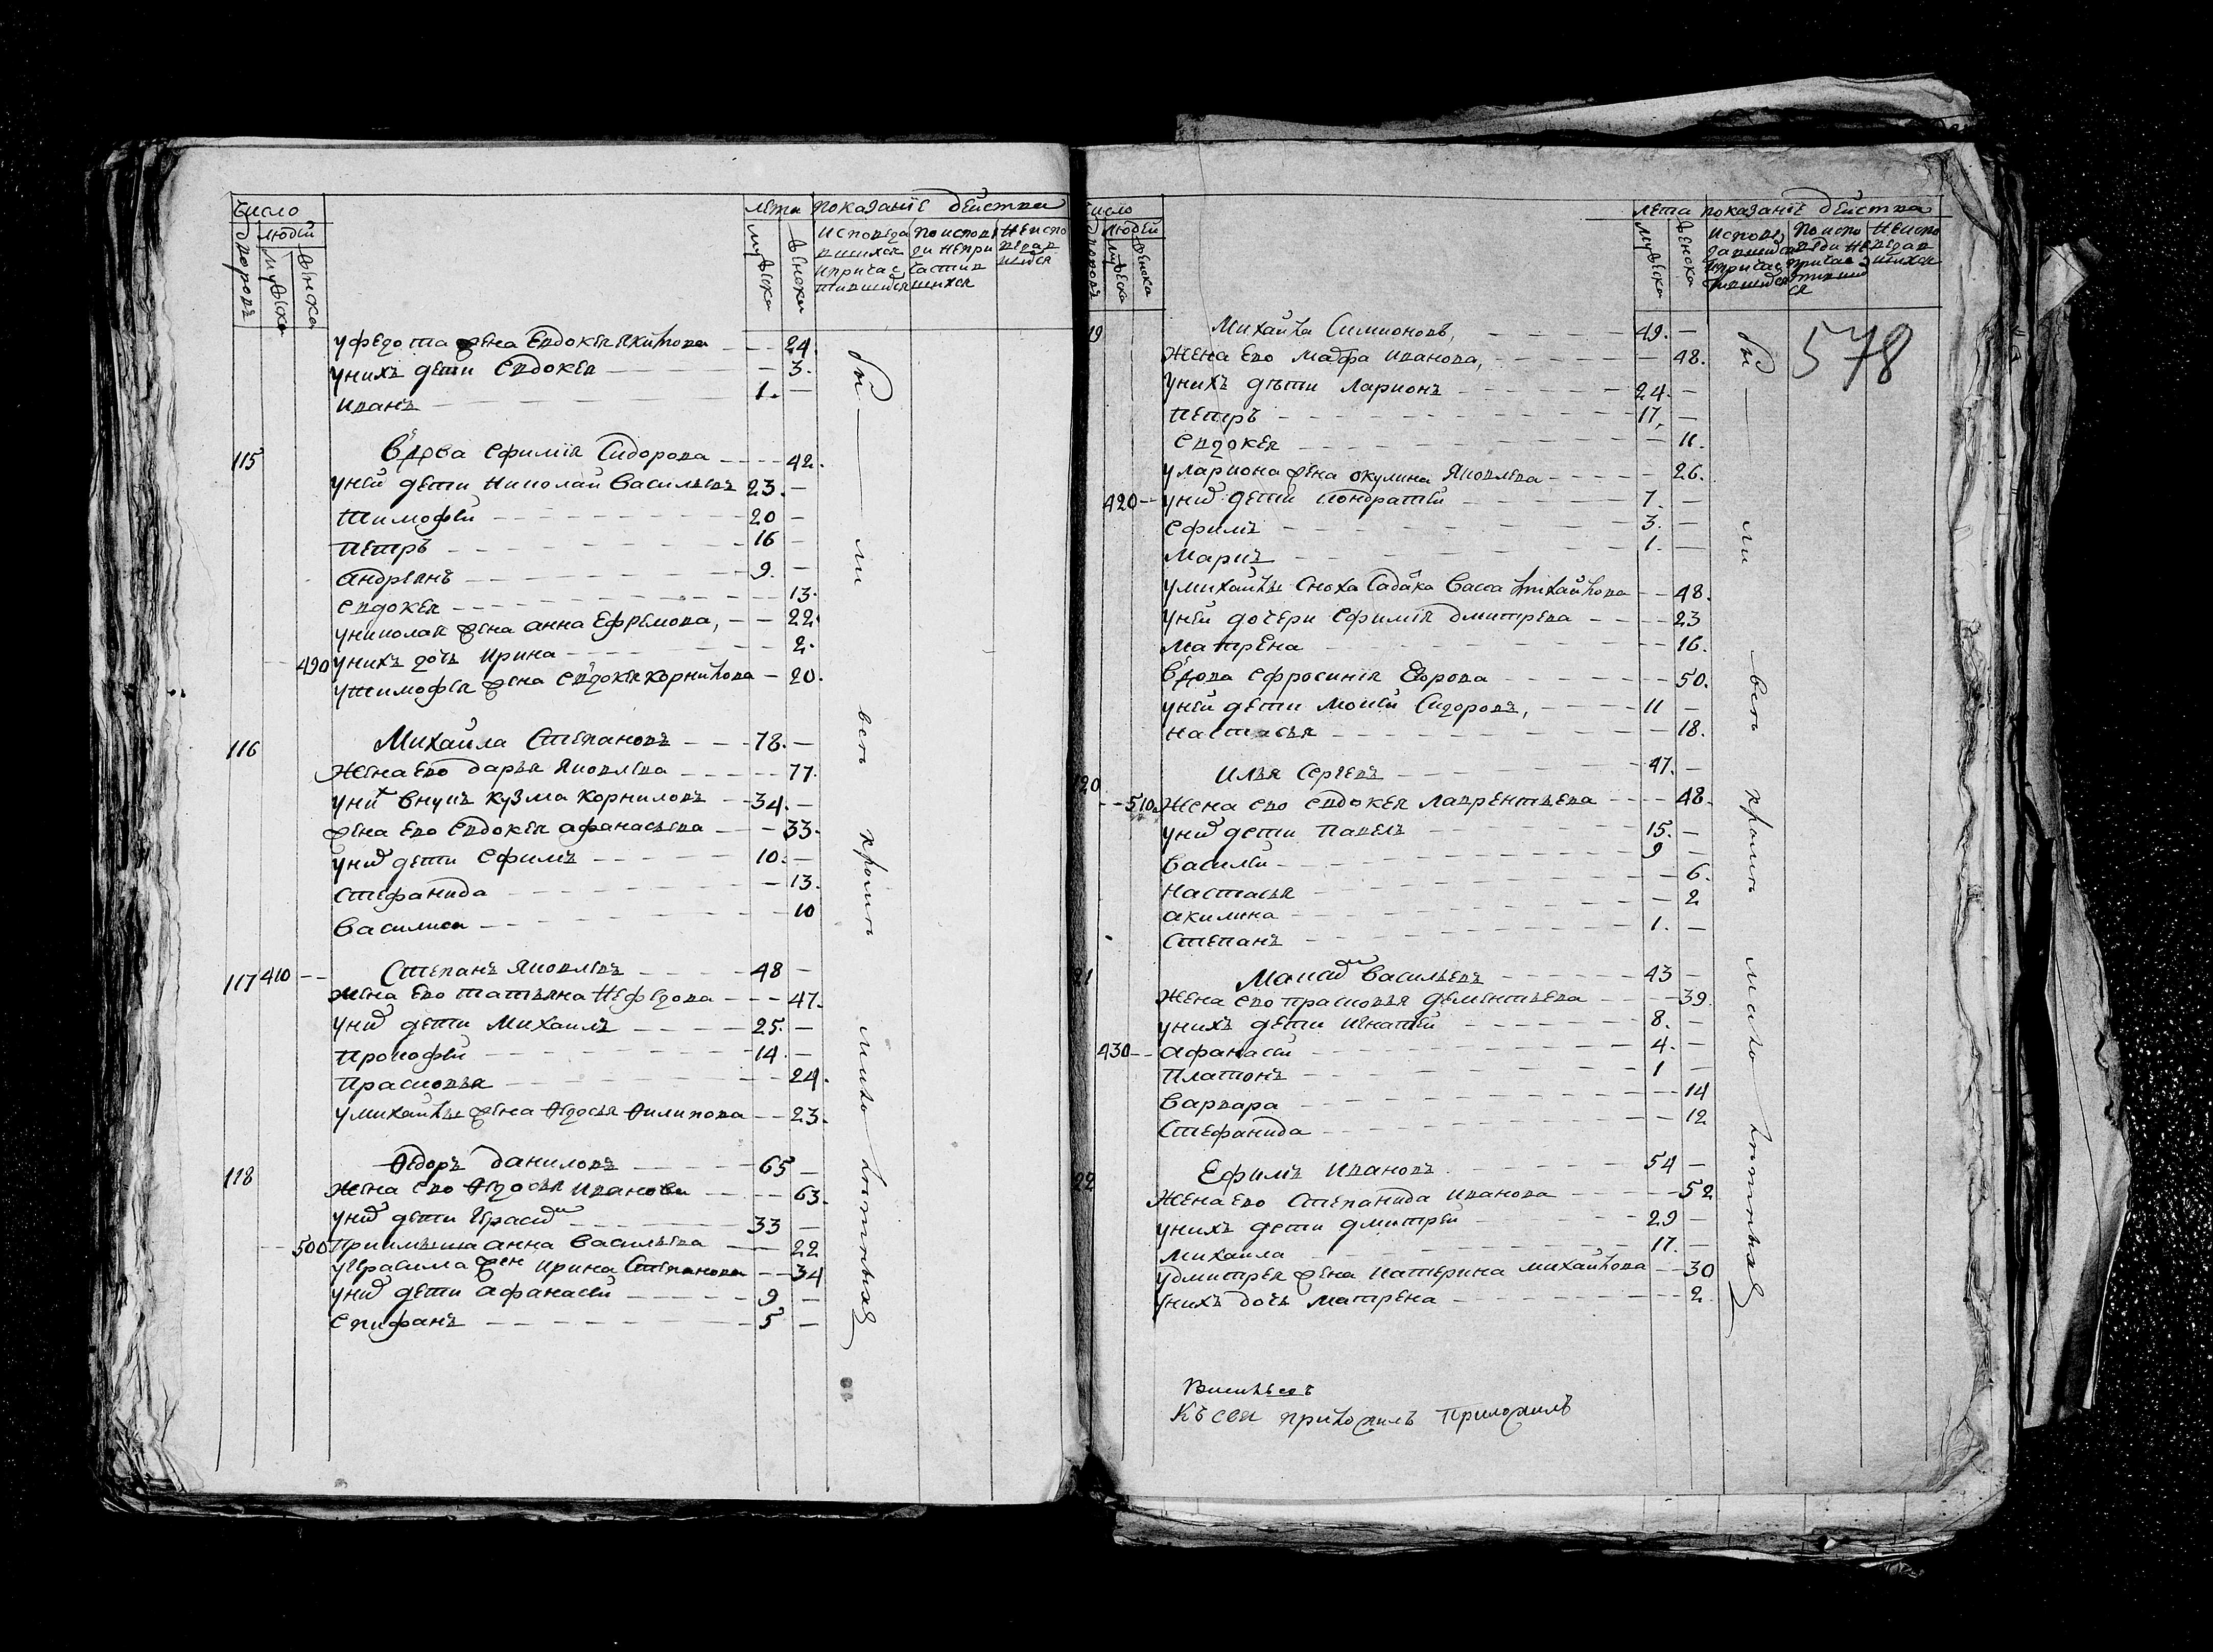 число
людей
дворовъ
мужеска
женска
лета
мужеска
женска
показаніе действа
исповеда
вшихся
и причас
тившихся
по испове
ди непри
частив
шихся
неиспо
ведав
шихся
у федота жена Евдокея Якимова 24.
у нихъ дети Евдокея 3.
иванъ 1.
115 вдова Ефимія Сидорова 42.
у ней дети Николай Васильевъ 23.
тимофей 20
петръ 16
андреянъ 9.
Евдокея 13.
у николая жена анна Ефремова, 22.
490 у нихъ дочь ирина 2.
у тимофея жена Евдокея корнилова 20.
116 Михайла Степановъ 78.
жена Ево дарья Яковлева 77.
у них внукъ кузма корниловъ 34.
жена Ево Евдокея афанасьева 33.
у них дети Ефимъ 10.
стефанида 13.
василиса 10
117 410 Степанъ Яковлевъ 48
жена Ево татьяна Нефедова 47.
у них дети Михаилъ 25.
прокофей 14.
прасковья 24.
у михайлы жена Ѳедосья Ѳилипова 23.
118 Ѳедоръ даниловъ 65
жена Ево Ѳедосья иванова 63.
у них дети Герасим 33
500 приимыша анна васильева 22
у Герасима жен ирина Степанова 34
у них дети афанасей 9
Епифанъ 5
вси
кроме
малолетныхъ
число
людей
дворовъ
мужеска
женска
лета
мужеска
женска
показаніе действа
испове
давшихся
и причас
тившихся
по испо
веди не
причас
тивших
ся
неиспо
ведав
шихся
578
19 Михайла Симионовъ, 49.
жена Ево марфа иванова, 48.
у нихъ дѣти ларионъ 24.
петръ 17,
Евдокея 11.
у лариона жена окулина Яковлева 26.
420 у них дети кондратей 7.
Ефимъ 3.
1.
у михайлы сноха васса михайлова 48.
у ней дочери Ефимія дмитрева 23
матрена 16.
вдова Ефросинія 50.
у ней дети моисей Сидоровъ, 11
настасья 18.
120 илья Сергевъ 47.
510 жена Ево Евдокея лаврентьева 48.
у них дети павелъ 15.
василей 9
настасья 6.
акилина 2
степанъ 1.
21 васильевъ 43
жена Ево прасковья дементьева 39.
у нихъ дети игнатей 8.
430 афанасей 4.
платонъ 1
варвара 14
стефанида 12
22 Ефимъ ивановъ 54
жена Ево Степанида иванова 52
у нихъ дети дмитрей 29
михаила 17.
у дмитрея жена катерина михайлова 30
у нихъ дочь матрена 2
вси
кроме
малолетныхъ